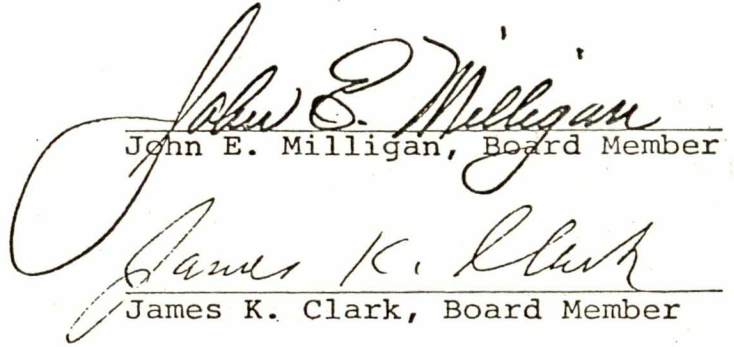 John E. Milligan
John E. Milligan, Board Member
James K. Clark
James K. Clark, Board Member